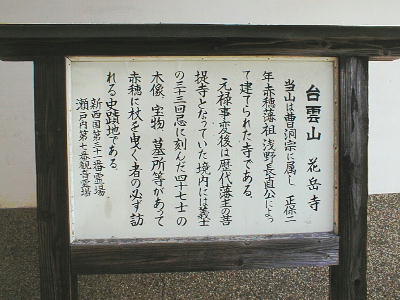 台雲山 花岳寺
当山は曹洞宗に属し 正保二
年赤穂藩祖 浅野長直公によっ
て建てられた寺である。
元禄事変後は歴代藩主の菩
提寺となっていた境内には義士
の三十三回忌に刻んだ四十七士の
木像、宝物、墓所等があって
赤穂に杖を曳く者の必ず訪
れる史蹟地である。
新西国第三十一番霊場
瀬戸内第七番観音霊場